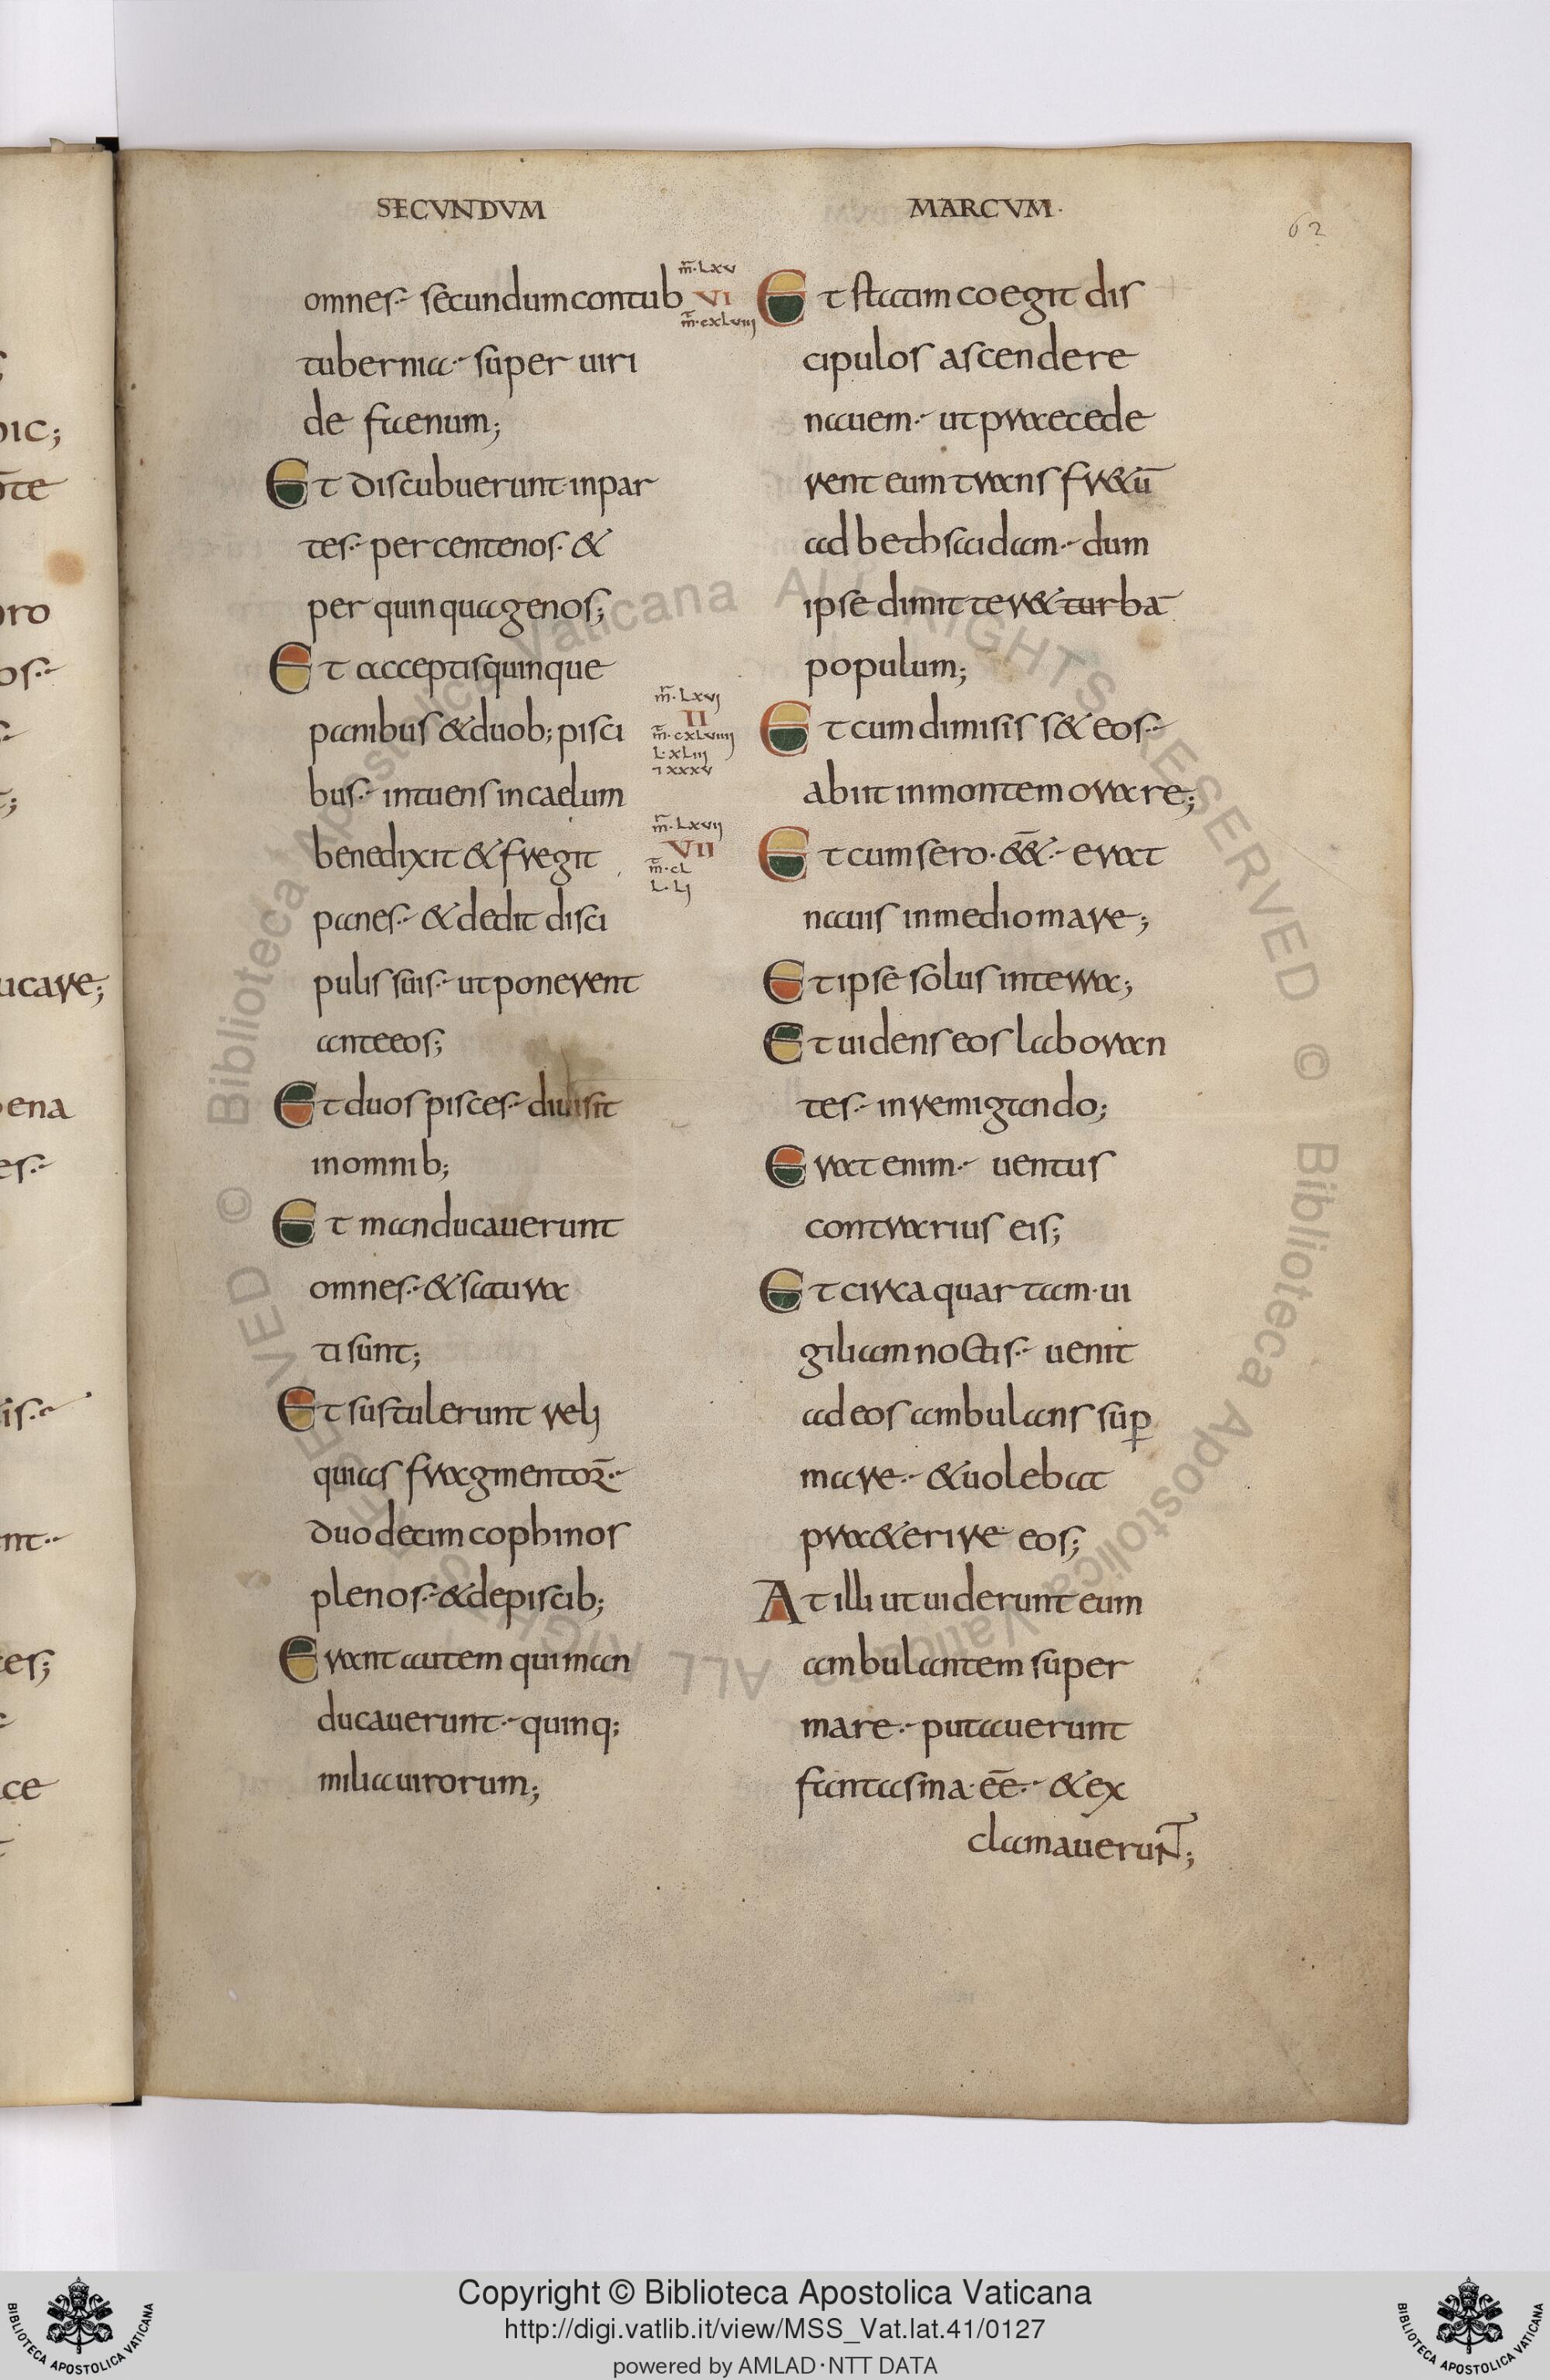 SECVNDVM
omnes secundum contub
tuberniа super uiri
de faenum;
Et discubuerunt in par
tes per centenos &
per quinquagenos;
Et acceptis quinque
panibus & duob; pisci
bus intuens in caelum
benedixit & fregit
panes & dedit disci
pulis suis ut ponerent
ante eos;
Et duos pisces diuisit
in omnib;
Et manducauerunt
omnes & satura
ti sunt;
Et sustulerunt reli
quias fragmentoꝝ
duodecim cophinos
plenos & de piscib;
Erant autem qui man
ducauerunt quinq;
milia uirorum;
m̅ · Lxv
VI
m̅ · cxLviii
m̅ · Lxvi
II
m̅ · cxLviiii
L · xLiii
ı xxxv
m̅ · Lxvii
VII
m̅ · cL
L · Li
MARCVM ·
62
Et statim coegit dis
cipulos ascendere
nauem ut praecede
rent eum trans fr&ū
ad bethsaidam dum
ipse dimitter& turba
populum;
Et cum dimisiss& eos
abiit in montem orare;
Et cum sero · e̅e̅& erat
nauis in medio mare;
Et ipse solus in terra;
Et uidens eos laboran
tes in remigando;
Erat enim uentus
contrarius eis;
Et circa quartam ui
giliam noctis uenit
ad eos ambulans suꝑ
mare & uolebat
pra&erire eos;
At illi ut uiderunt eum
ambulantem super
mare putauerunt
fantasma · ee̅ & ex
clamauerunt;
ıc;
o̅te
ro
os
ucare;
ena
es
is
nt
es;
ce
Copyright © Biblioteca Apostolica Vaticana
http://digi.vatlib.it/view/MSS_Vat.lat.41/0127
powered by AMLAD·NTT DATA
BIBLIOTECA APOSTOLICA VATICANA
BIBLIOTECA APOSTOLICA VATICANA
© Biblioteca Apostolica Vaticana ALL RIGHTS RESERVED © Biblioteca Apostolica Vaticana ALL RIGHTS RESERVED